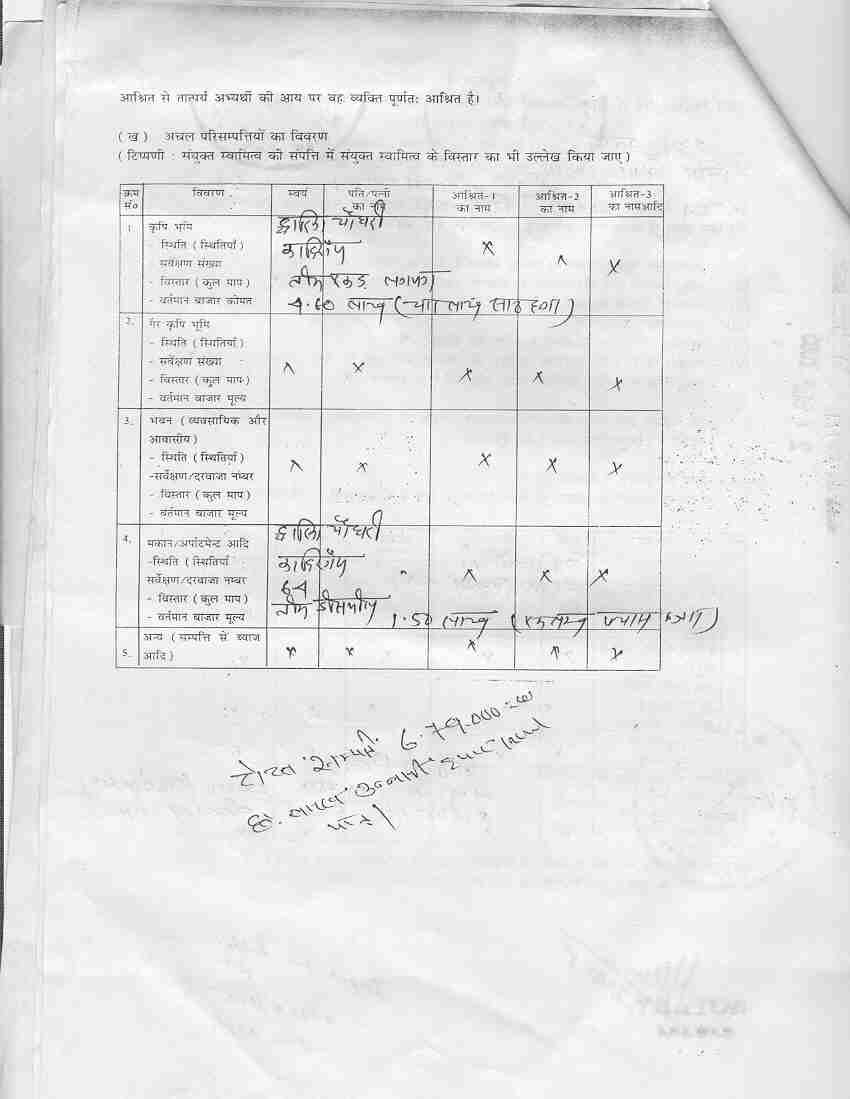 आश्रित से तात्पर्य अभ्यर्थी की आय पर वह व्यक्ति पूर्णतः आश्रित है।
( ख ) अचल परिसम्पत्तियों का विवरण
( टिप्पणी : संयुक्त स्वामित्व की संपत्ति में संयुक्त स्वामित्व के विस्तार का भी उल्लेख किया जाए )
क्रम सं० विवरण स्वयं पति/पत्नी का नाम आश्रित-1 का नाम आश्रित-2 का नाम आश्रित-3 का नामआदि
1. कृषि भूमि
- स्थिति ( स्थितियाँ ) x x x
सर्वेक्षण संख्या
- विस्तार ( कुल माप ) तीन एकड़
- वर्तमान बाजार कीमत 4.60 लाख ( चार लाख साठ
2. गैर कृषि भूमि
- स्थिति ( स्थितियाँ )
- सर्वेक्षण संख्या x x x x x
- विस्तार ( कुल माप )
- वर्तमान बाजार मूल्य
3. भवन ( व्यवसायिक और
आवासीय )
- स्थिति ( स्थितियाँ ) x x x x x
-सर्वेक्षण/दरवाजा नम्बर
- विस्तार ( कुल माप )
- वर्तमान बाजार मूल्य
चौधरी
4. मकान/अपार्टमेन्ट आदि
-स्थिति ( स्थितियाँ x x x
सर्वेक्षण/दरवाजा नम्बर
- विस्तार ( कुल माप ) तीन डीसमील
- वर्तमान बाजार मूल्य 1.50 लाख
5. अन्य ( सम्पत्ति से ब्याज
आदि ) x x x x x
टोटल सम्पति 6.79.000